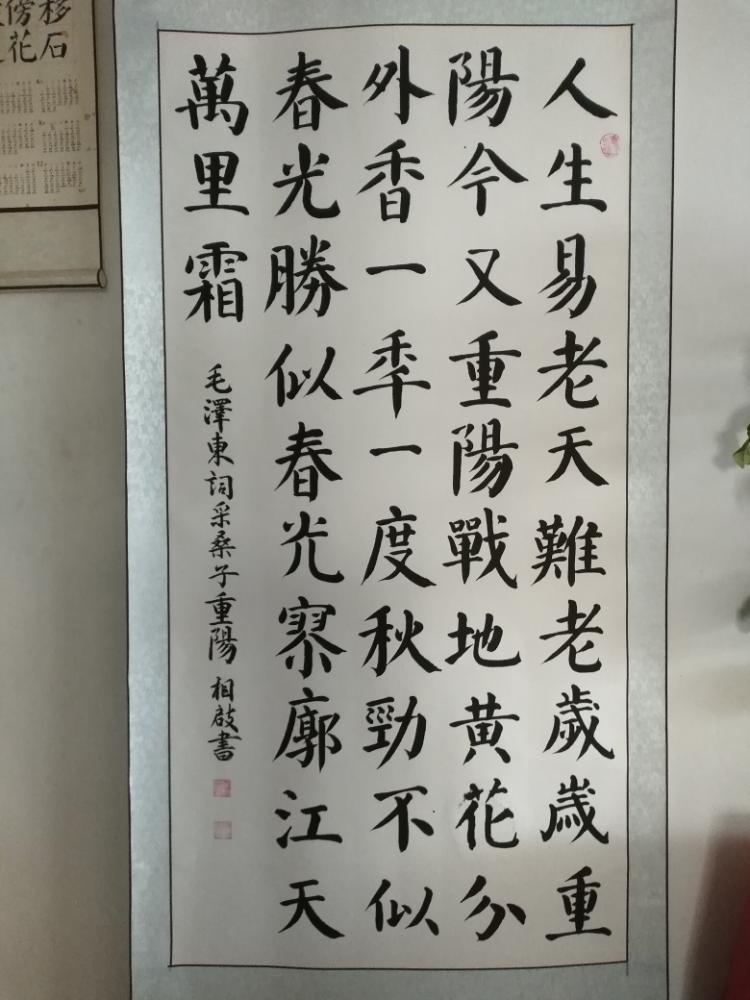 人生易老天難老歲歲重
陽今又重陽戰地黄花分
外香一秊一度秋勁不似
春光勝似春光寥廓江天
萬里霜
毛澤東詞采桑子重陽 相啟書
移石
傍花